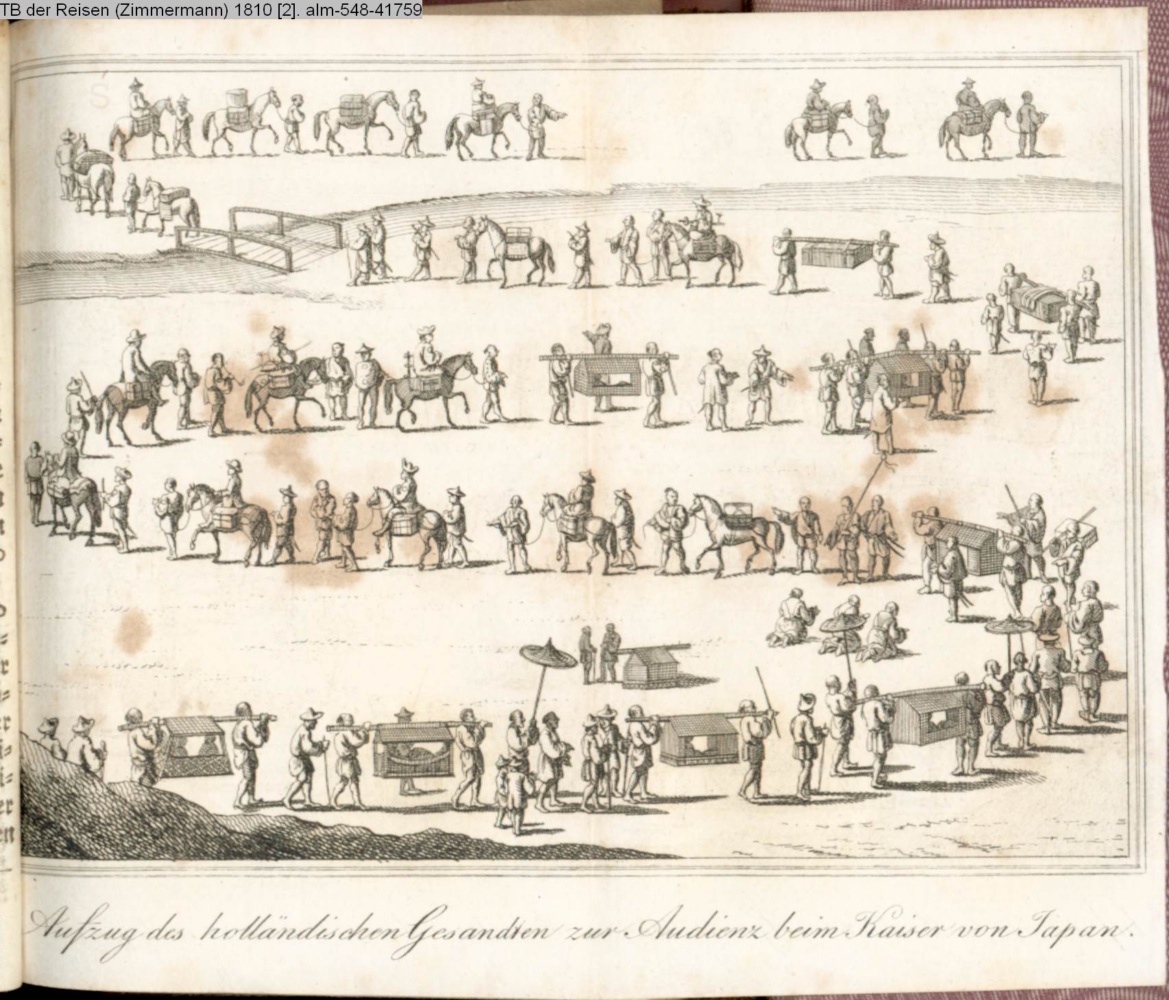 TB der Reisen (Zimmermann) 1810 [2]. alm-548-41759
Aufzug des holländischen Gesandten zur Audienz beim Kaiser von Japan.